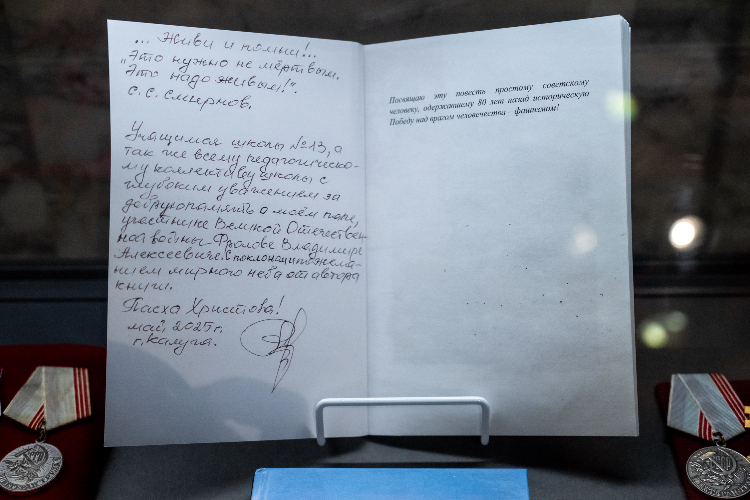 ... Живи и помни!...
„Это нужно не мёртвым.
Это надо живым!".
С. С. Смирнов.
Учащимся школы №13, а
так же всему педагогическо-
му коллективу школы с
глубоким уважением за
добрую память о моём папе,
участнике Великой Отечествен-
ной войны - Фролове Владимире
Алексеевиче. С поклоном и пожела-
нием мирного неба от автора
книги.
Пасха Христова!
май, 2025 г.
г. Калуга.
Посвящаю эту повесть простому советскому
человеку, одержавшему 80 лет назад историческую
Победу над врагом человечества фашизмом!